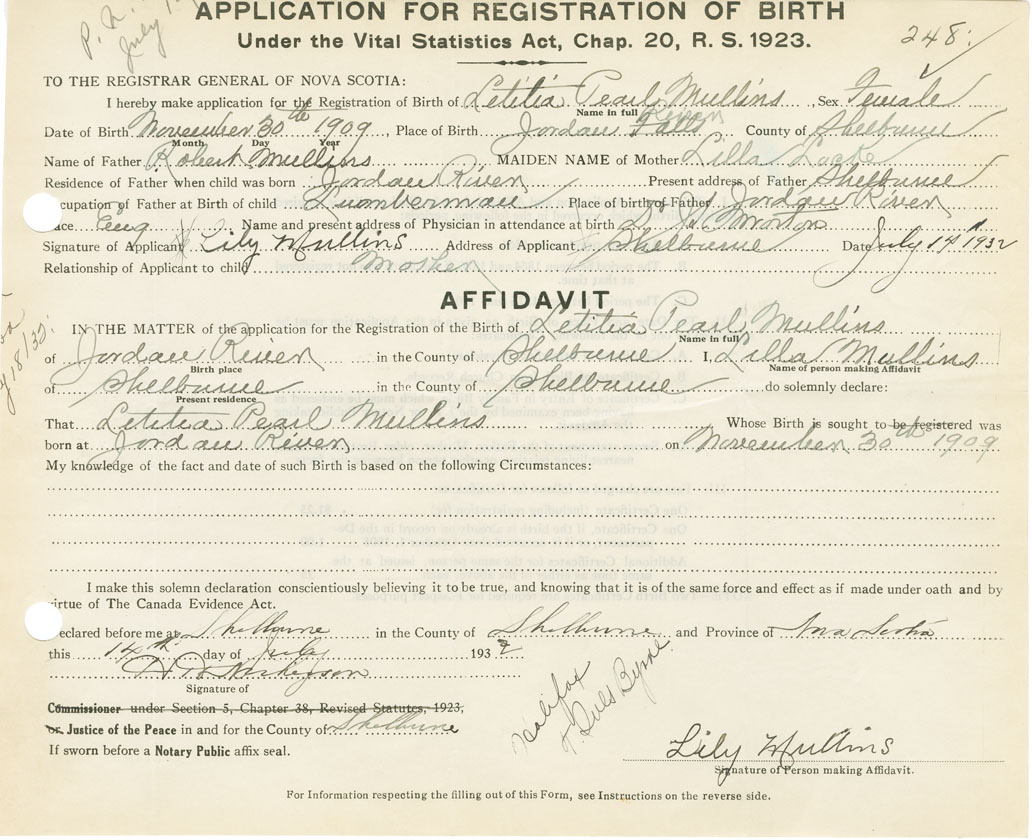 APPLICATION FOR REGISTRATION OF BIRTH
Under the Vital Statistics Act, Chap. 20, R. S. 1923.
P. N.
July
248.
TO THE REGISTRAR GENERAL OF NOVA SCOTIA:
I hereby make application for the Registration of Birth of Letitia Pearl Mullins, Sex Female
Name in full
Date of Birth November 30th 1909, Place of Birth Jordan Falls River County of Shelburne
Month Day Year
Name of Father Robert Mullins MAIDEN NAME of Mother Lilla Locke
Residence of Father when child was born Jordan River Present address of Father Shelburne
cupation of Father at Birth of child Lumberman Place of birth of Father Jordan River
ace Eng Name and present address of Physician in attendance at birth Morton
Signature of Applicant x Lily Mullins Address of Applicant x Shelburne Date July 14 1932
Relationship of Applicant to child Mother
AFFIDAVIT
IN THE MATTER of the application for the Registration of the Birth of Letitia Pearl Mullins
Name in full
of Jordan River in the County of Shelburne I, Lilla Mullins
Birth place Name of person making Affidavit
of Shelburne in the County of Shelburne do solemnly declare:
Present residence
That Letitia Pearl Mullins Whose Birth is sought to be registered was
born at Jordan River on November 30th 1909
My knowledge of the fact and date of such Birth is based on the following Circumstances:
I make this solemn declaration conscientiously believing it to be true, and knowing that it is of the same force and effect as if made under oath and by
virtue of The Canada Evidence Act.
eclared before me at Shelburne in the County of Shelburne and Province of Nova Scotia
this 14th day of July 1932
Signature of
Commissioner under Section 5, Chapter 38, Revised Statutes, 1923,
or Justice of the Peace in and for the County of Shelburne
If sworn before a Notary Public affix seal.
Halifax
Jules Byrne
Lily Mullins
Signature of Person making Affidavit.
For Information respecting the filling out of this Form, see Instructions on the reverse side.